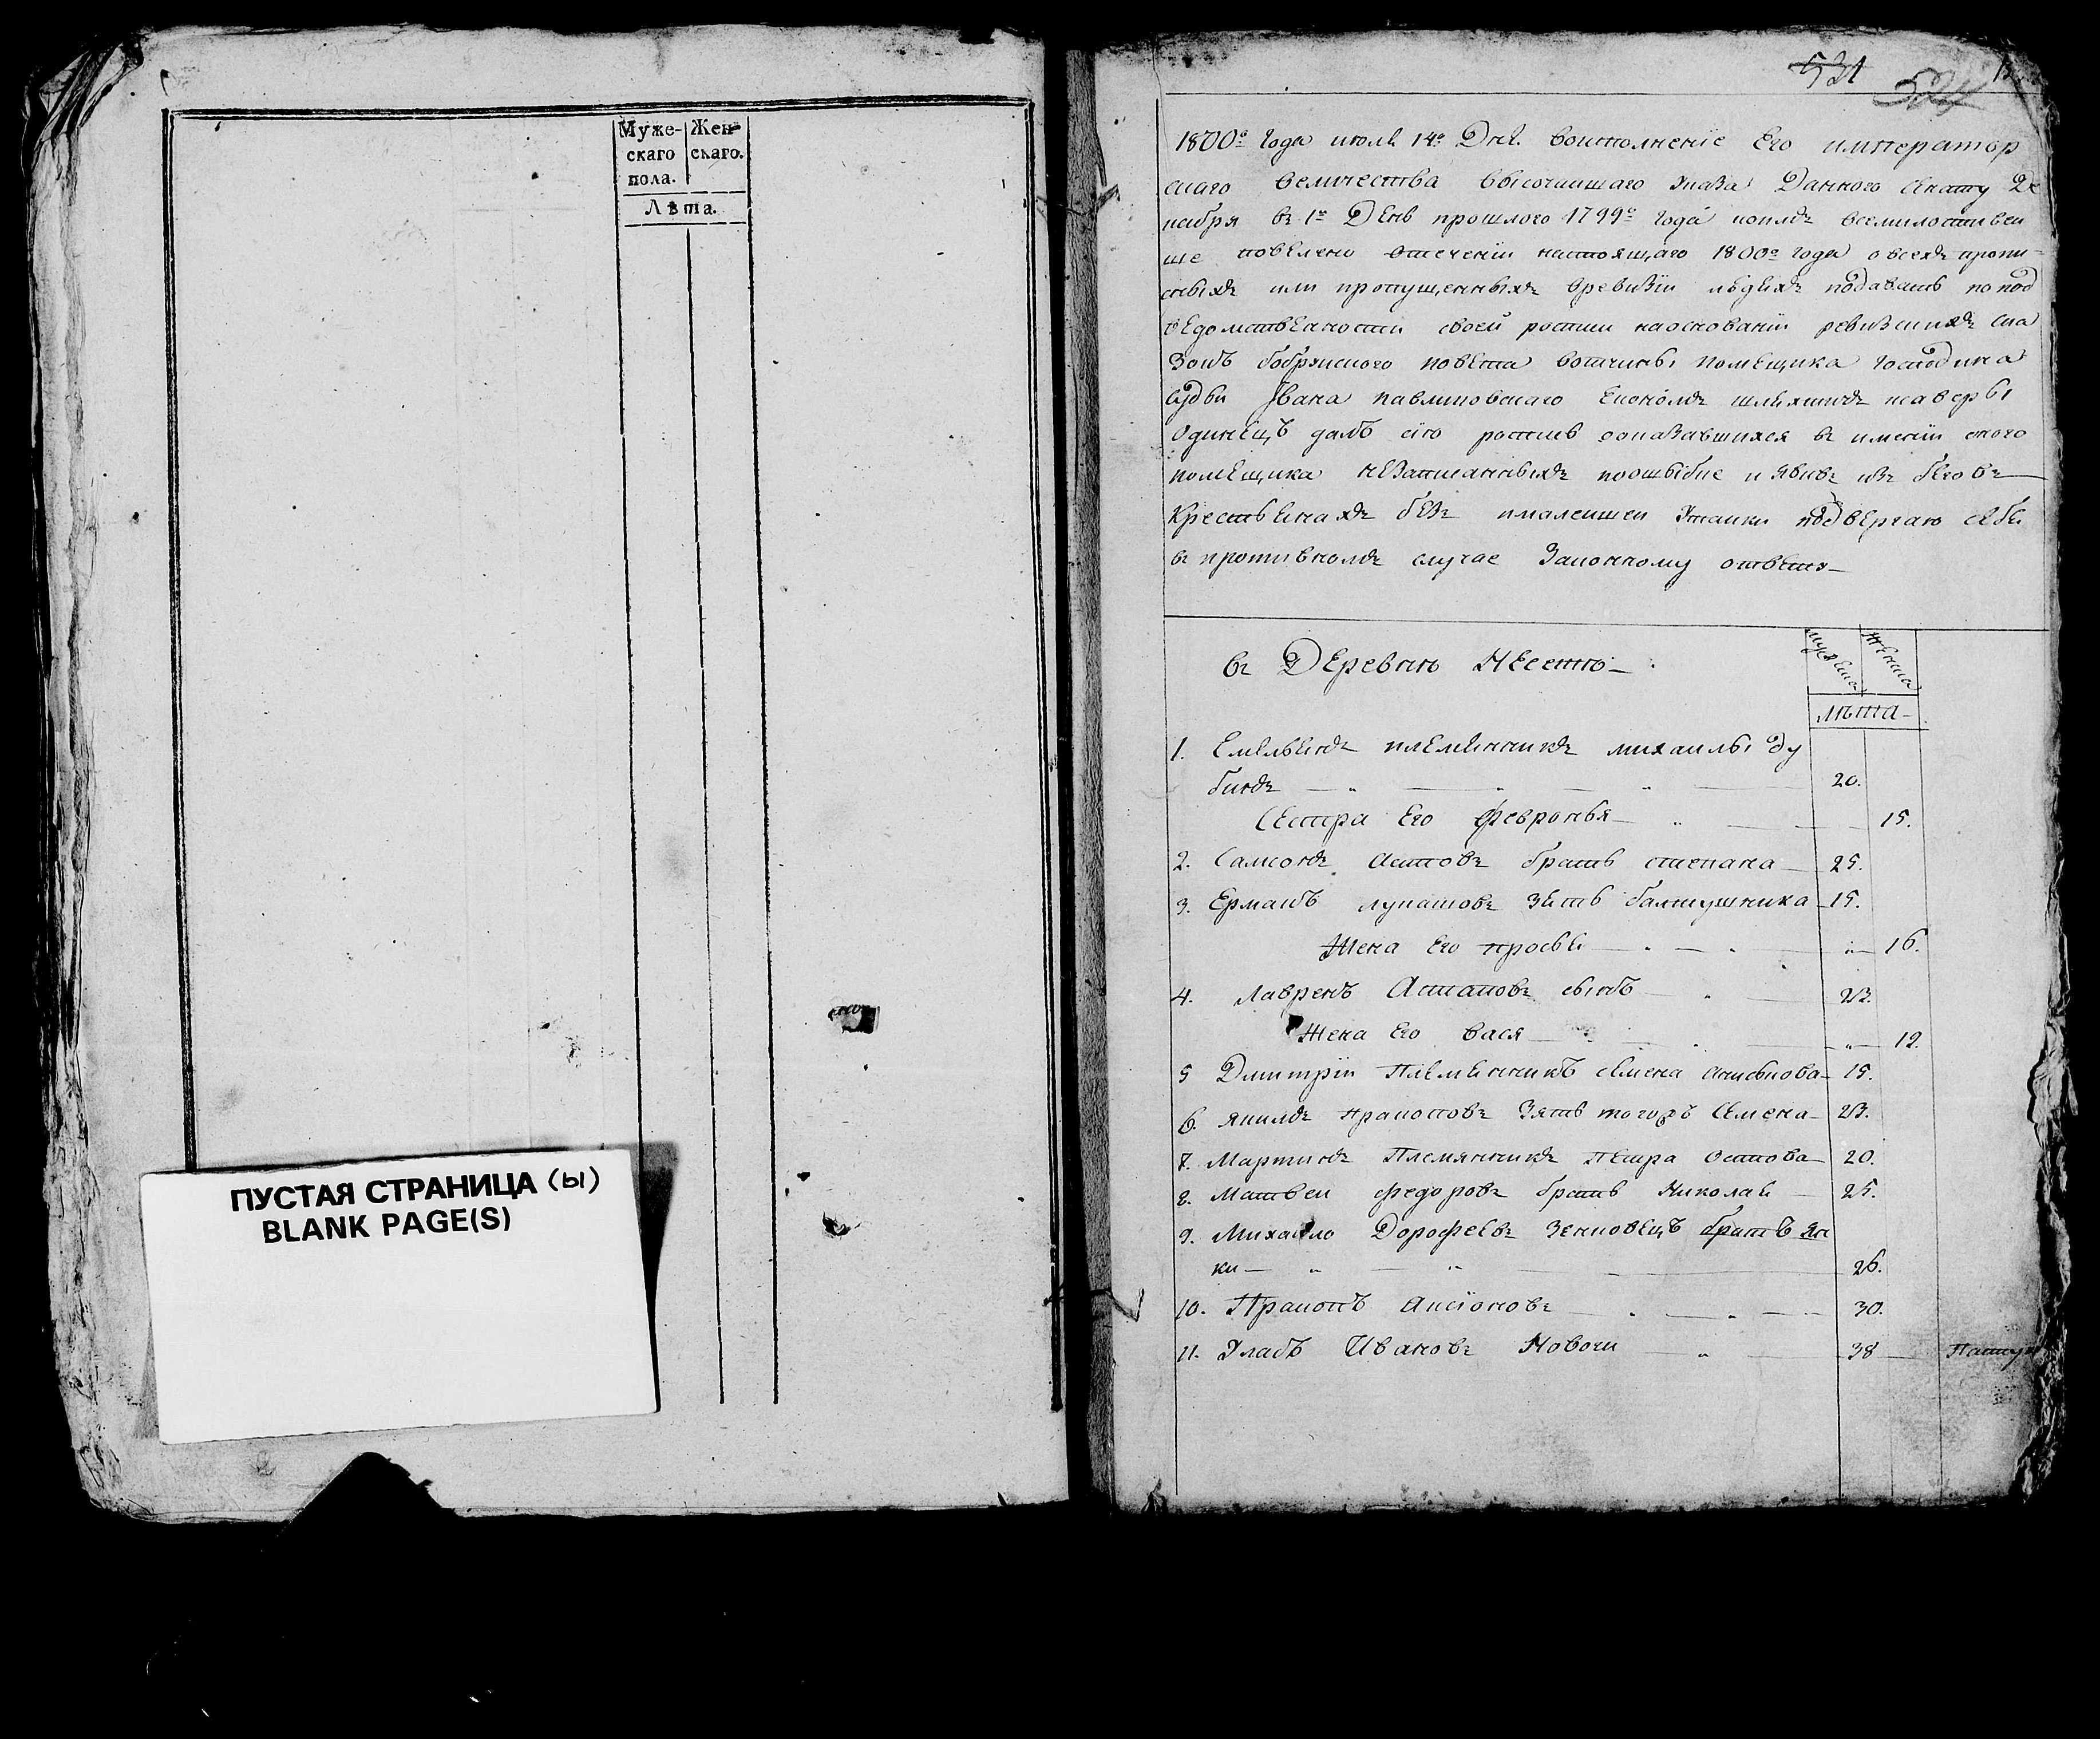 Муже- Жен-
скаго скаго.
пола.
Лѣта.
ПУСТАЯ СТРАНИЦА (ы)
BLANK PAGE(S)
531
1800го Года июля 14го Дня воисполнение Его император
скаго величества высочаишаго указа Данного Сенату Де
кабря въ 1е День прошлого 1799го Года коимъ всемилостивеи
ше повелено втечении настоящаго 1800го Года о всехъ пропи
сныхъ или пропущенныхъ вревизии людяхъ подавать по под
ведомственности своеи росписи наосновании ревизскихъ ска
зокъ бобруиского повета вотчины помещика Господина
судьи Ивана павликовскаго економъ шляхтичъ
Одинецъ далъ сию роспись ооказавшихся въ имении оного
помещика незаписанныхъ поошыбке и явив изъ беговъ
Крестьянахъ безъ ималеишеи утаики подвергаю себя
въ противномъ случае Законному ответу
въ Деревню
мужеска женска
лѣта
1. Емельянъ племянникъ михаилы ду
бикъ 20.
Сестра Его февронья 15.
2. Самсонъ брать степана 25.
3. Ермакъ лукашовъ зять 15.
Жена Его 16.
4. Лавренъ Астаповъ сынъ 23.
Жена Его вася 19.
5 Дмитрии Племянникъ семена 15.
6. якимъ праконовъ Зять тогожъ Семена 23.
7. Мартинъ Племянникъ Петра Остапова 20.
8. Матвеи федоровъ брать Николаи 25.
9. Михаило Дорофеевъ Зенковецъ братъ Ян
ки 26.
10. Праконъ Аксіоновъ 30.
11. Уласъ Ивановъ 38 Пастух